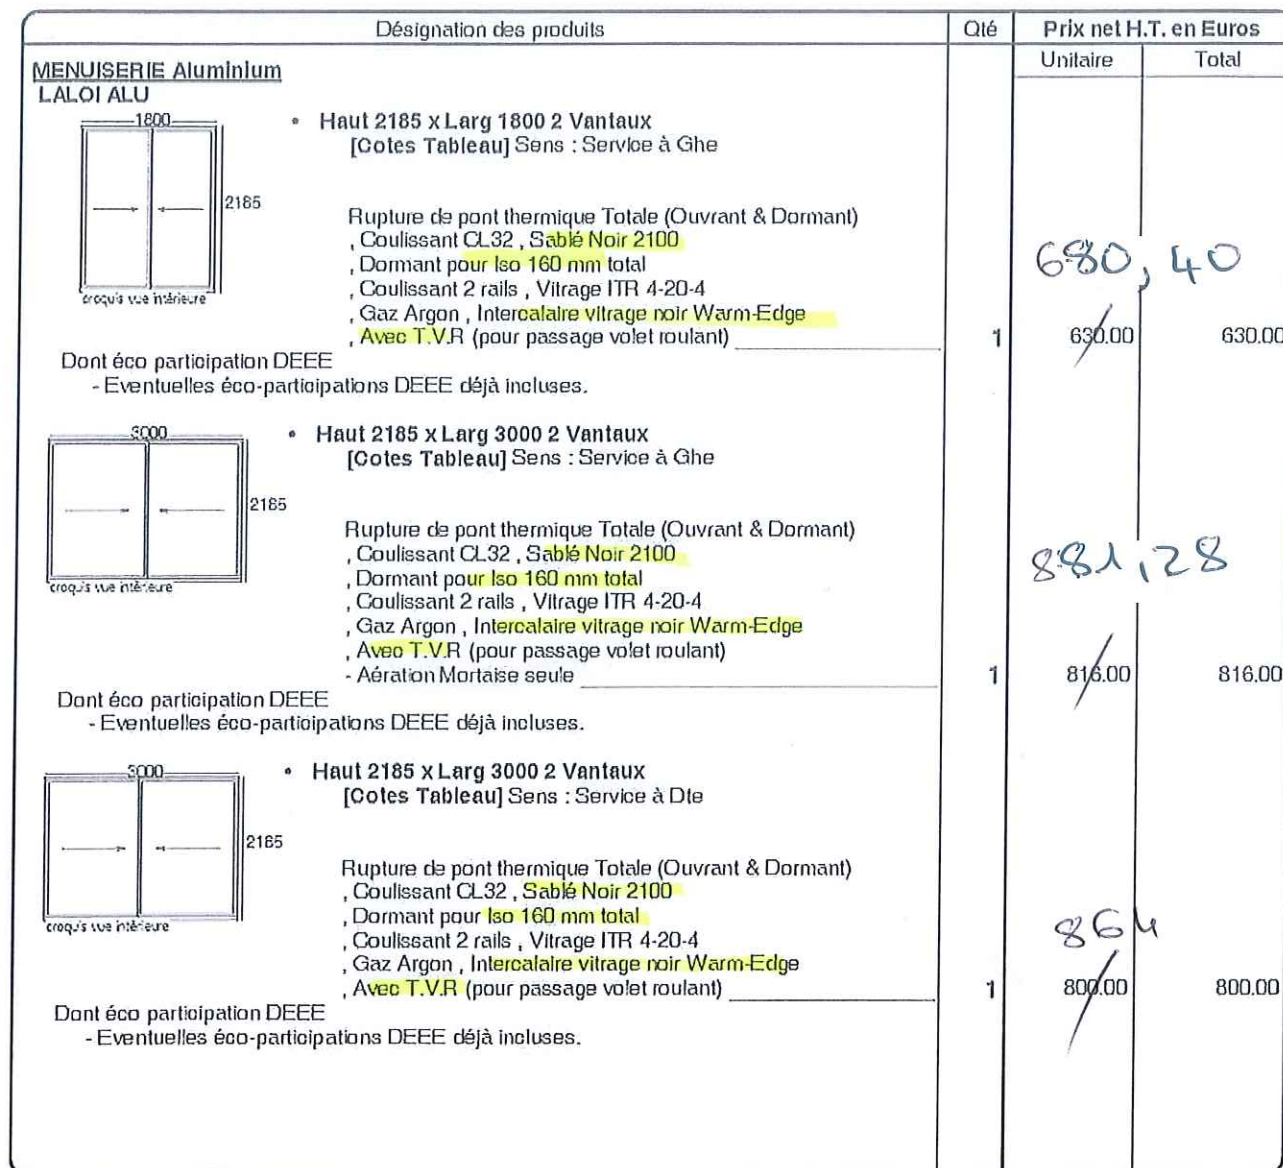 Désignation des produits Qté Prix net H.T. en Euros
Unitaire Total
MENUISERIE Aluminium
LALOI ALU
1800
• Haut 2185 x Larg 1800 2 Vantaux
[Cotes Tableau] Sens : Service à Ghe
2185
Rupture de pont thermique Totale (Ouvrant & Dormant)
, Coulissant CL32 , Sablé Noir 2100
, Dormant pour Iso 160 mm total
680,40
, Coulissant 2 rails , Vitrage ITR 4-20-4
croquis vue intérieure
, Gaz Argon , Intercalaire vitrage noir Warm-Edge
, Avec T.V.R (pour passage volet roulant) 1 630.00 630.00
Dont éco participation DEEE
- Eventuelles éco-participations DEEE déjà incluses.
3000
• Haut 2185 x Larg 3000 2 Vantaux
[Cotes Tableau] Sens : Service à Ghe
2185
Rupture de pont thermique Totale (Ouvrant & Dormant)
, Coulissant CL32 , Sablé Noir 2100
881,28
, Dormant pour Iso 160 mm total
croquis vue intérieure
, Coulissant 2 rails , Vitrage ITR 4-20-4
, Gaz Argon , Intercalaire vitrage noir Warm-Edge
, Avec T.V.R (pour passage volet roulant)
- Aération Mortaise seule 1 816.00 816.00
Dont éco participation DEEE
- Eventuelles éco-participations DEEE déjà incluses.
3000
• Haut 2185 x Larg 3000 2 Vantaux
[Cotes Tableau] Sens : Service à Dte
2185
Rupture de pont thermique Totale (Ouvrant & Dormant)
, Coulissant CL32 , Sablé Noir 2100
, Dormant pour Iso 160 mm total
croquis vue intérieure
864
, Coulissant 2 rails , Vitrage ITR 4-20-4
, Gaz Argon , Intercalaire vitrage noir Warm-Edge
, Avec T.V.R (pour passage volet roulant) 1 800.00 800.00
Dont éco participation DEEE
- Eventuelles éco-participations DEEE déjà incluses.